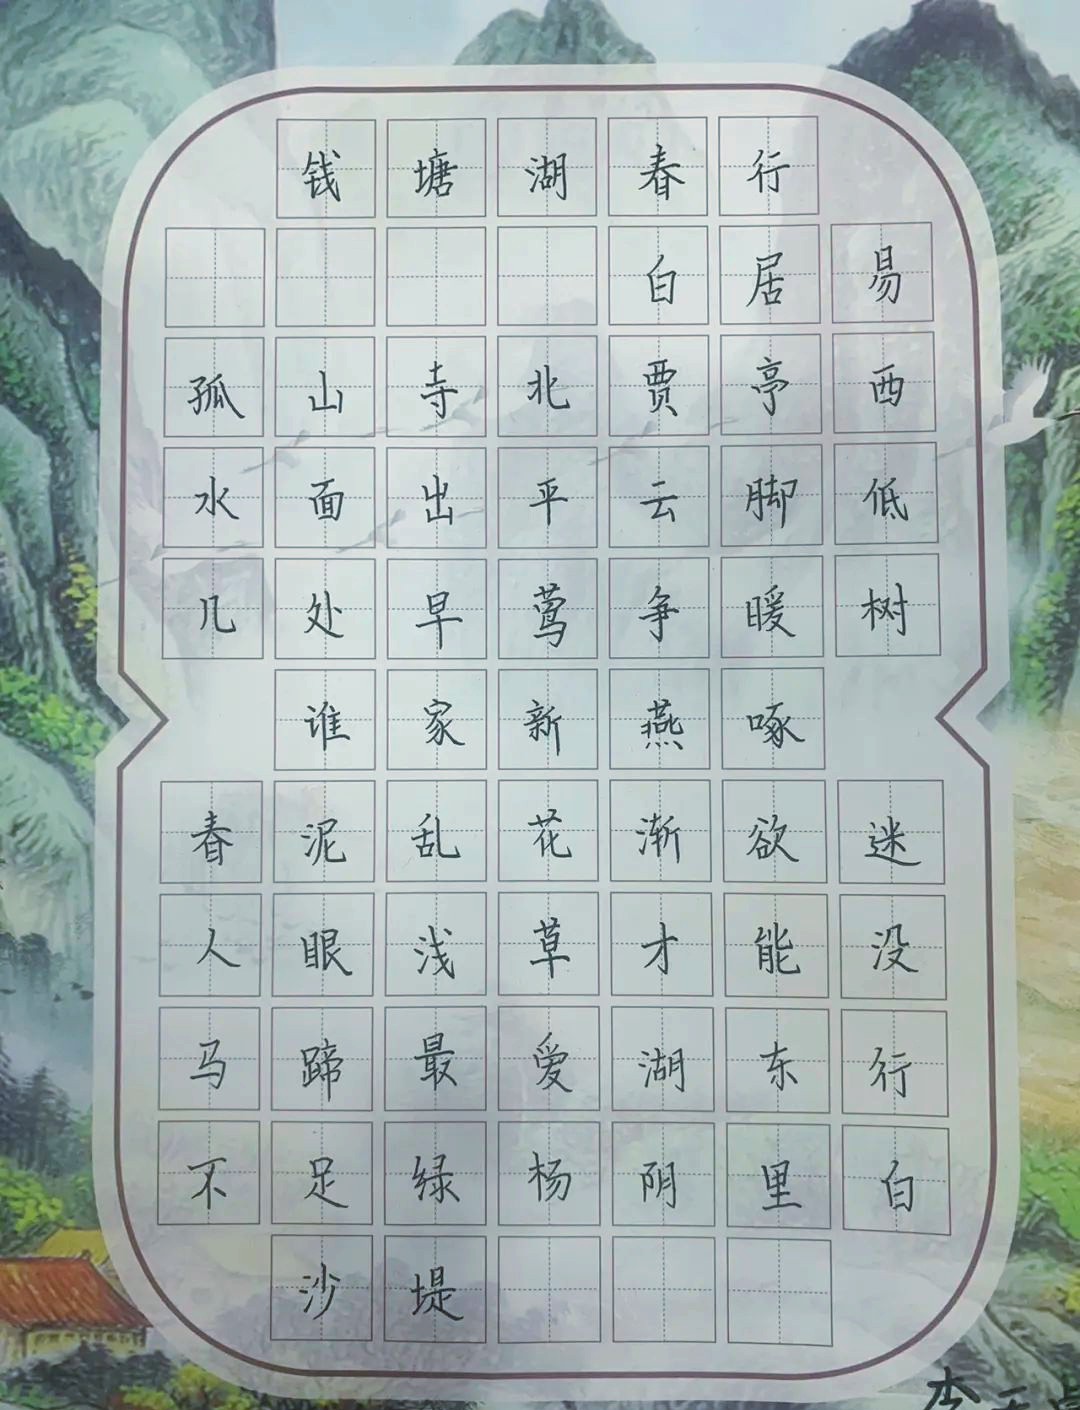 钱塘湖春行
白居易
孤山寺北贾亭西
水面出平云脚低
几处早莺争暖树
谁家新燕啄
春泥乱花渐欲迷
人眼浅草才能没
马蹄最爱湖东行
不足绿杨阴里白
沙堤
李